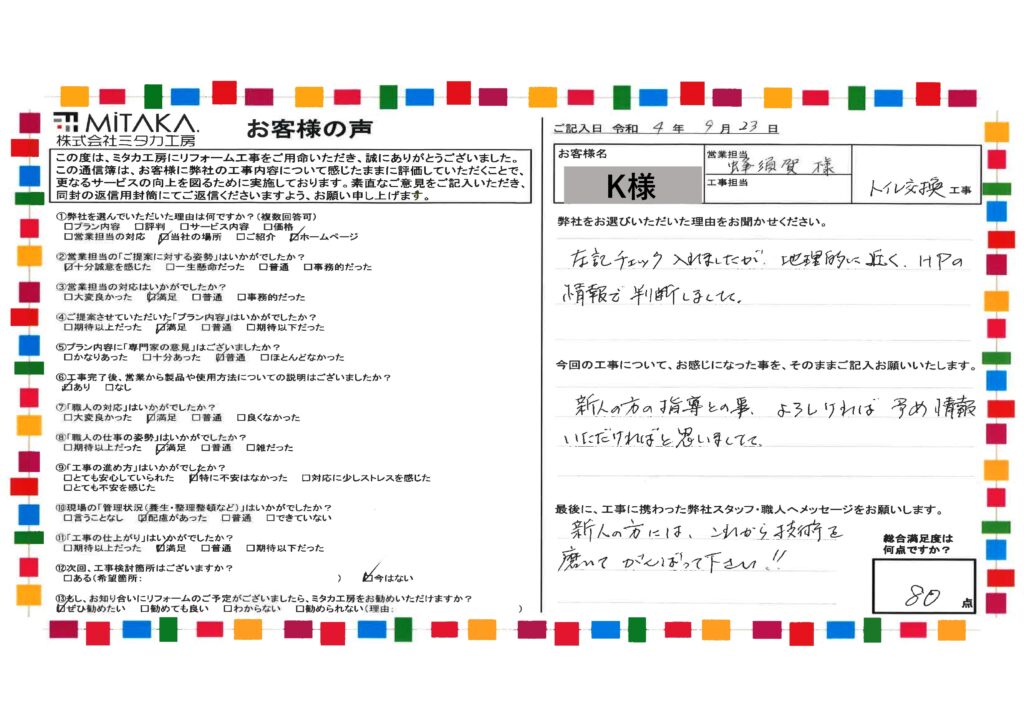 MiTAKA.
株式会社ミタカ工房
お客様の声
この度は、ミタカ工房にリフォーム工事をご用命いただき、誠にありがとうございました。
この通信簿は、お客様に弊社の工事内容について感じたままに評価していただくことで、
更なるサービスの向上を図るために実施しております。素直なご意見をご記入いただき、
同封の返信用封筒にてご返信くださいますよう、お願い申し上げます。
①弊社を選んでいただいた理由は何ですか？(複数回答可)
□プラン内容 □評判 □サービス内容 □価格
□営業担当の対応 ☑当社の場所 □ご紹介 ☑ホームページ
②営業担当の「ご提案に対する姿勢」はいかがでしたか？
☑十分誠意を感じた □一生懸命だった □普通 □事務的だった
③営業担当の対応はいかがでしたか？
□大変良かった ☑満足 □普通 □事務的だった
④ご提案させていただいた「プラン内容」はいかがでしたか？
□期待以上だった ☑満足 □普通 □期待以下だった
⑤プラン内容に「専門家の意見」はございましたか？
□かなりあった □十分あった ☑普通 □ほとんどなかった
⑥工事完了後、営業から製品や使用方法についての説明はございましたか？
☑あり □なし
⑦「職人の対応」はいかがでしたか？
□大変良かった ☑満足 □普通 □良くなかった
⑧「職人の仕事の姿勢」はいかがでしたか？
□期待以上だった ☑満足 □普通 □雑だった
⑨「工事の進め方」はいかがでしたか？
□とても安心していられた ☑特に不安はなかった □対応に少しストレスを感じた
□とても不安を感じた
⑩現場の「管理状況(養生・整理整頓など)」はいかがでしたか？
□言うことなし ☑配慮があった □普通 □できていない
⑪「工事の仕上がり」はいかがでしたか？
□期待以上だった ☑満足 □普通 □期待以下だった
⑫次回、工事検討箇所はございますか？
□ある(希望箇所: ) ☑今はない
⑬もし、お知り合いにリフォームのご予定がございましたら、ミタカ工房をお勧めいただけますか？
☑ぜひ勧めたい □勧めても良い □わからない □勧められない(理由: )
ご記入日 令和 4 年 9 月 23 日
お客様名
K様
営業担当
蜂須賀 様
工事担当
トイレ交換 工事
弊社をお選びいただいた理由をお聞かせください。
左記チェック入れましたが、地理的に近く、HPの
情報で判断しました。
今回の工事について、お感じになった事を、そのままご記入お願いいたします。
新人の方の指導との事、よろしければ予め情報
いただければと思いました。
最後に、工事に携わった弊社スタッフ・職人へメッセージをお願いします。
新人の方には、これから技術を
磨いてがんばって下さい!!
総合満足度は
何点ですか？
80 点